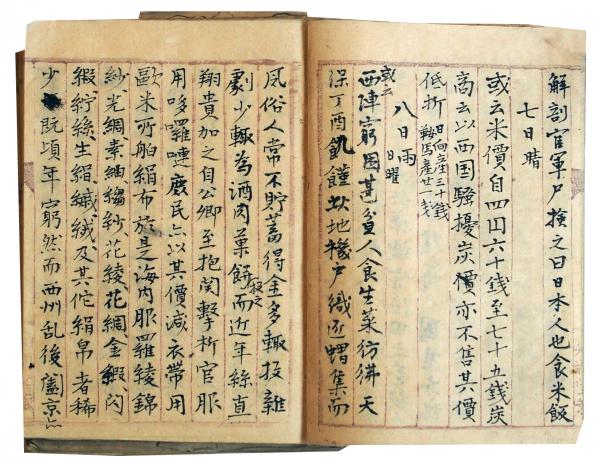 解剖官軍尸検之曰日本人也食米飯
七日晴
或云米價自四円六十錢至七十五錢炭
高云以西国騒擾炭價亦不售其價
低折 日向産三十銭
鞍馬産廿一銭
八日雨 日曜
或云
西陣窮困甚貧人食生菜彷彿天
保丁酉飢饉此地機戸織 蝟集而
風俗人常不貯蓄得金多輙投雜
劇少輙為酒肉菓餅 而近年絲直
翔貴加之自公卿至抱関撃柝官服
用哆羅嗹庶民亦以其價減衣帶用
歐米所舶絹布於是海内服羅綾錦
紗光綢素綢縐紗花綾花綢金緞閃
緞紵絲生絹絨及其佗絹帛者稀
少 既頃年窮然而西州乱後廬京